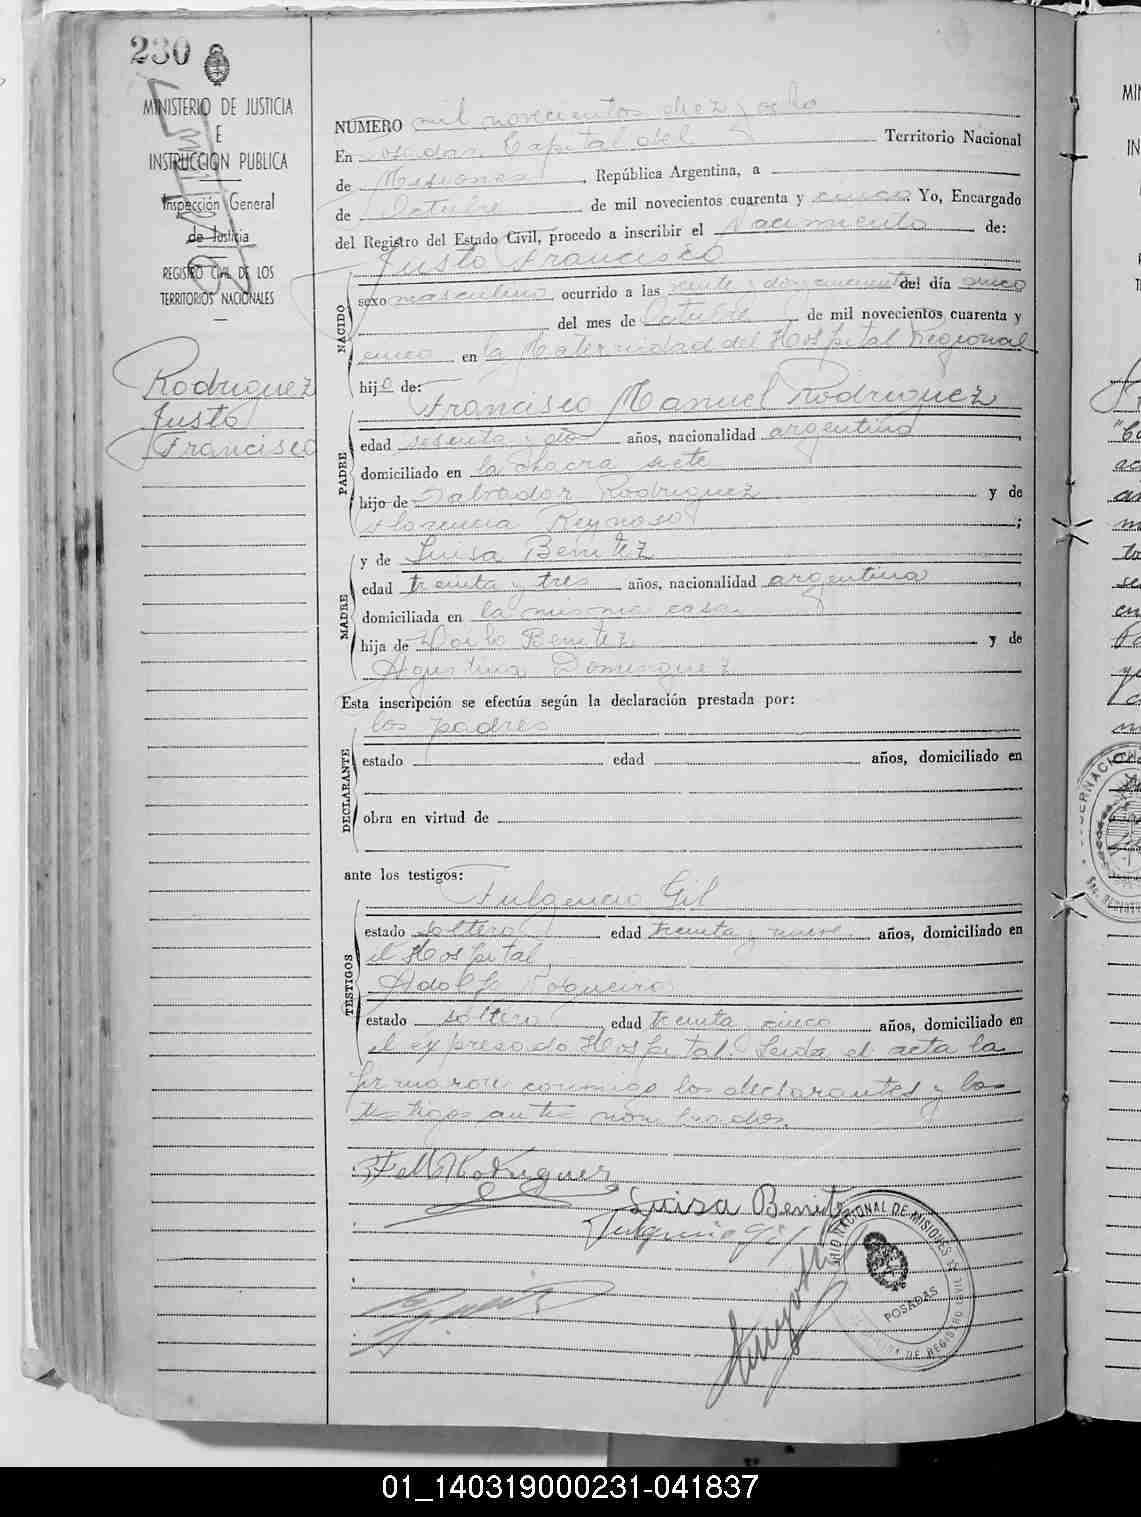 230
MINISTERIO DE JUSTICIA
E
INSTRUCCIÓN PUBLICA
Inspección General
de Justicia
REGISTRO CIVIL DE LOS
TERRITORIOS NACIONALES
Rodriguez
Justo
Francisco
NÚMERO mil novecientos diez y ocho
En Posadas Capital del Territorio Nacional
de Misiones, República Argentina, a
de Octubre de mil novecientos cuarenta y cinco. Yo, Encargado
del Registro del Estado Civil, procedo a inscribir el Nacimiento de:
Justo Francisco
NACIDO
sexo masculino ocurrido a las del día cinco
del mes de Octubre de mil novecientos cuarenta y
cinco en la Maternidad del Hospital Regional
hijo de:
Francisco Manuel Rodriguez
PADRE
edad sesenta y dos años, nacionalidad argentino
domiciliado en la chacra siete
hijo de Salvador Rodriguez y de
Florencia Reynoso;
y de Luisa Benitez
MADRE
edad treinta y tres años, nacionalidad argentina
domiciliada en la misma casa
hija de Benitez y de
Agustina Dominguez
Esta inscripción se efectúa según la declaración prestada por:
los padres
DECLARANTE
estado edad años, domiciliado en
obra en virtud de
ante los testigos:
Fulgencio Gil
TESTIGOS
estado soltero edad treinta y nueve años, domiciliado en
el Hospital,
Adolfo Nogueira
estado soltero edad treinta cinco años, domiciliado en
el expresado Hospital. Leida el acta la
firmaron conmigo los declarantes y los
testigos antes nombrados.
F M Rodriguez
Luisa Benitez
Fulgencio Gil
NACIONAL DE MISIONES
POSADAS
DE REGISTRO CIVIL
01_140319000231-041837